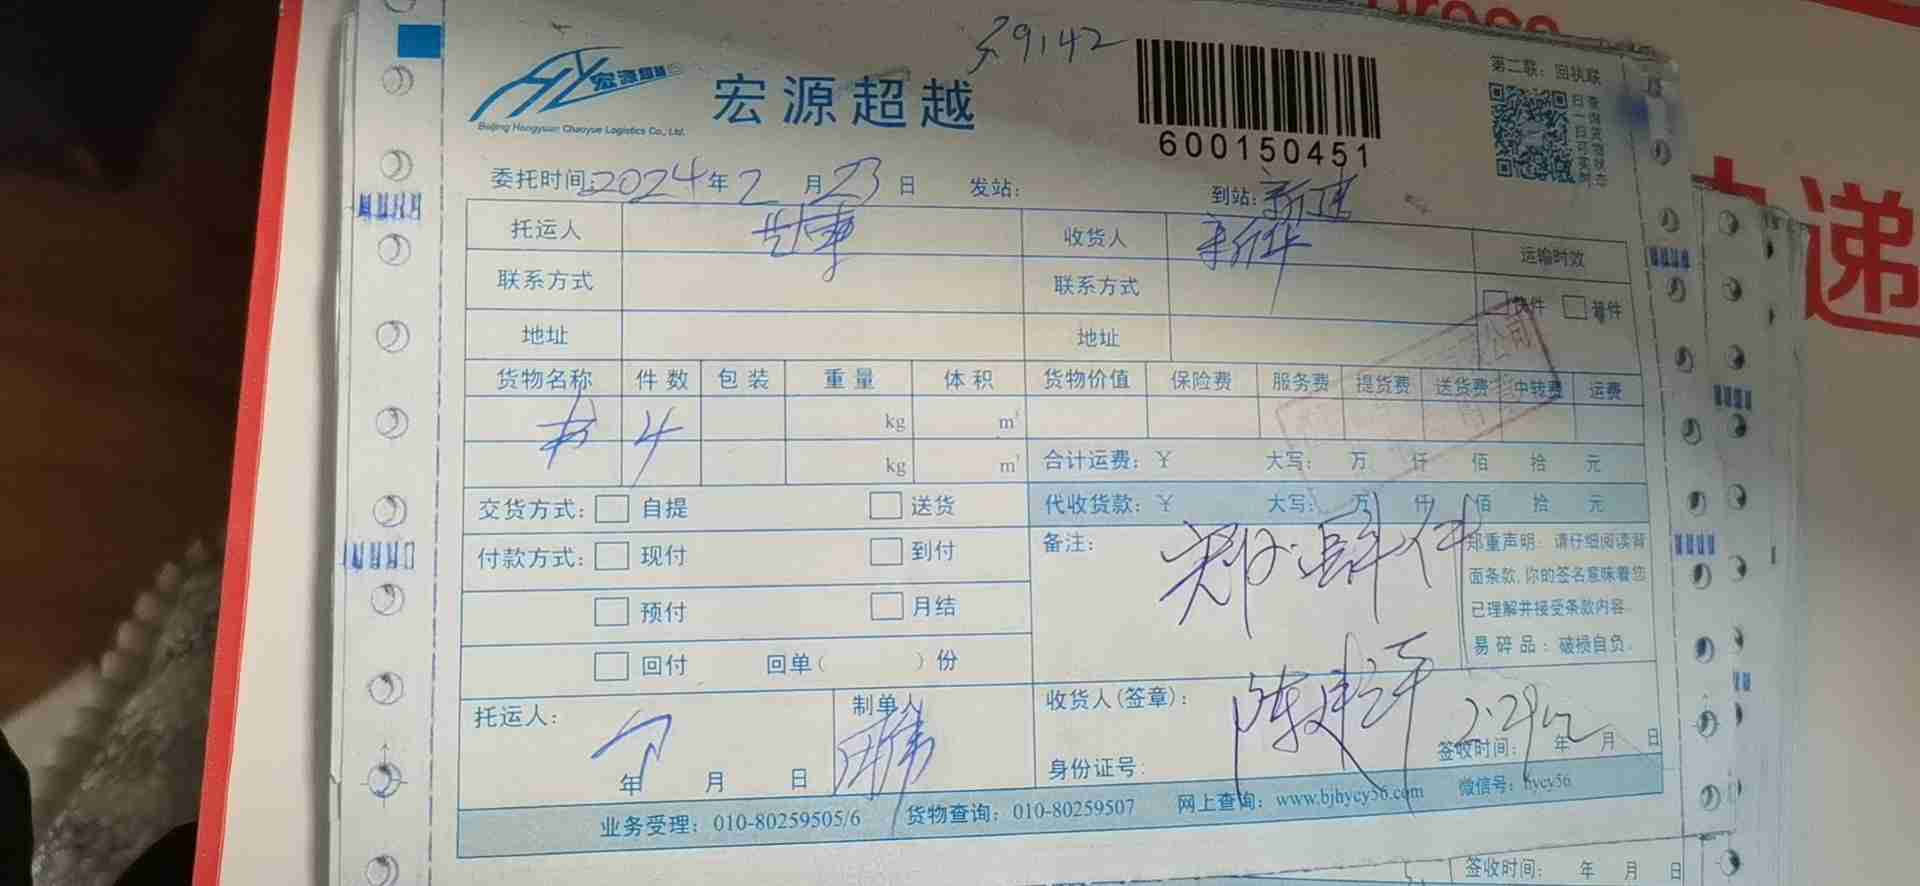 宏源超越
Beijing Hongyuan Chaoyue Logistics Co., Ltd.
宏源超越
39142
600150451
第二联：回执联
扫一扫
查询货物状态
委托时间：2024年2月23日 发站： 到站：新建
托运人 收货人 新华 运输时效
联系方式 联系方式 快件 普件
地址 地址
货物名称 件数 包装 重量 体积 货物价值 保险费 服务费 提货费 送货费 中转费 运费
书 4 kg m³
kg m³ 合计运费：¥ 大写： 万 仟 佰 拾 元
交货方式： 自提 送货 代收货款：¥ 大写： 万 仟 佰 拾 元
付款方式： 现付 到付 备注：
预付 月结
回付 回单（ ）份
郑重声明：请仔细阅读背
面条款,你的签名意味着您
已理解并接受条款内容.
易碎品：破损自负.
托运人： 年 月 日
制单人
收货人(签章)：
身份证号： 签收时间： 年 月 日
2.29
业务受理：010-80259505/6 货物查询：010-80259507 网上查询：www.bjhycy56.com 微信号：hycy56
签收时间： 年 月 日
递